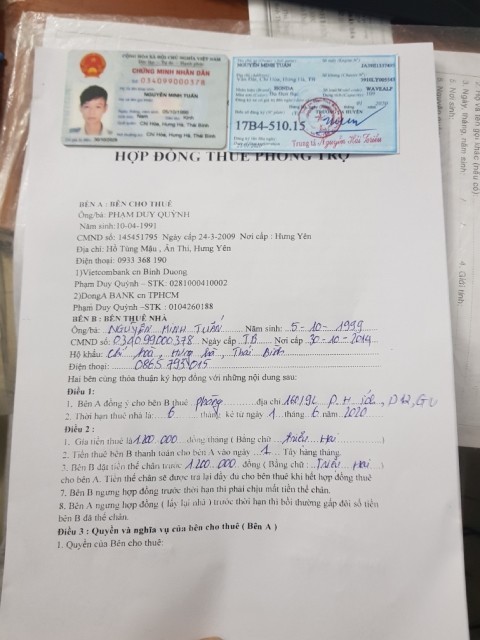 CỘNG HÒA XÃ HỘI CHỦ NGHĨA VIỆT NAM
CHỨNG MINH NHÂN DÂN
034099000378
NGUYỄN MINH TUẤN
Chí Hòa, Hưng Hà, Thái Bình
NGUYỄN MINH TUẤN
Chí Hòa, Hưng Hà, TB
HONDA
WAVEALF
17B4-510.15
Trung tá Nguyễn Hải Triều
HỢP ĐỒNG THUÊ PHÒNG TRỌ
BÊN A : BÊN CHO THUÊ
Ông/bà: PHẠM DUY QUỲNH
Năm sinh:10-04-1991
CMND số: 145451795 Ngày cấp 24-3-2009 Nơi cấp : Hưng Yên
Địa chỉ: Hồ Tùng Mậu , Ân Thi, Hưng Yên
Điện thoại: 0933 368 190
1)Vietcombank cn Binh Duong
Phạm Duy Quỳnh – STK: 0281000410002
2)DongA BANK cn TPHCM
Phạm Duy Quỳnh –STK : 0104260188
BÊN B : BÊN THUÊ NHÀ
Ông/bà: NGUYỄN MINH TUẤN Năm sinh: 5-10-1999
CMND số: 034099000378 Ngày cấp T.B Nơi cấp 30-10-2014
Hộ khẩu: Chí Hoà, Hưng Hà, Thái Bình
Điện thoại: 0865795015
Hai bên cùng thỏa thuận ký hợp đồng với những nội dung sau:
Điều 1:
1. Bên A đồng ý cho bên B thuê phòng địa chỉ
2. Thời hạn thuê nhà là: 6 tháng kể từ ngày 1 tháng 6 năm 2020
Điều 2 :
1. Gía tiền thuê là 1200 000 đồng/tháng ( Bằng chữ triệu Hai )
2. Tiền thuê bên B thanh toán cho bên A vào ngày 1 Tây hàng tháng.
3. Bên B đặt tiền thế chân trước 1200 000 đồng (Bằng chữ Triệu Hai )
cho bên A. Tiền thế chân sẽ được trả lại đầy đủ cho bên thuê khi hết hợp đồng thuê
7. Bên B ngưng hợp đồng trước thời hạn thì phải chịu mất tiền thế chân.
8. Bên A ngưng hợp đồng ( lấy lại nhà ) trước thời hạn thì bồi thường gấp đôi số tiền
bên B đã thế chân.
Điều 3 : Quyền và nghĩa vụ của bên cho thuê ( Bên A )
1. Quyền của Bên cho thuê: